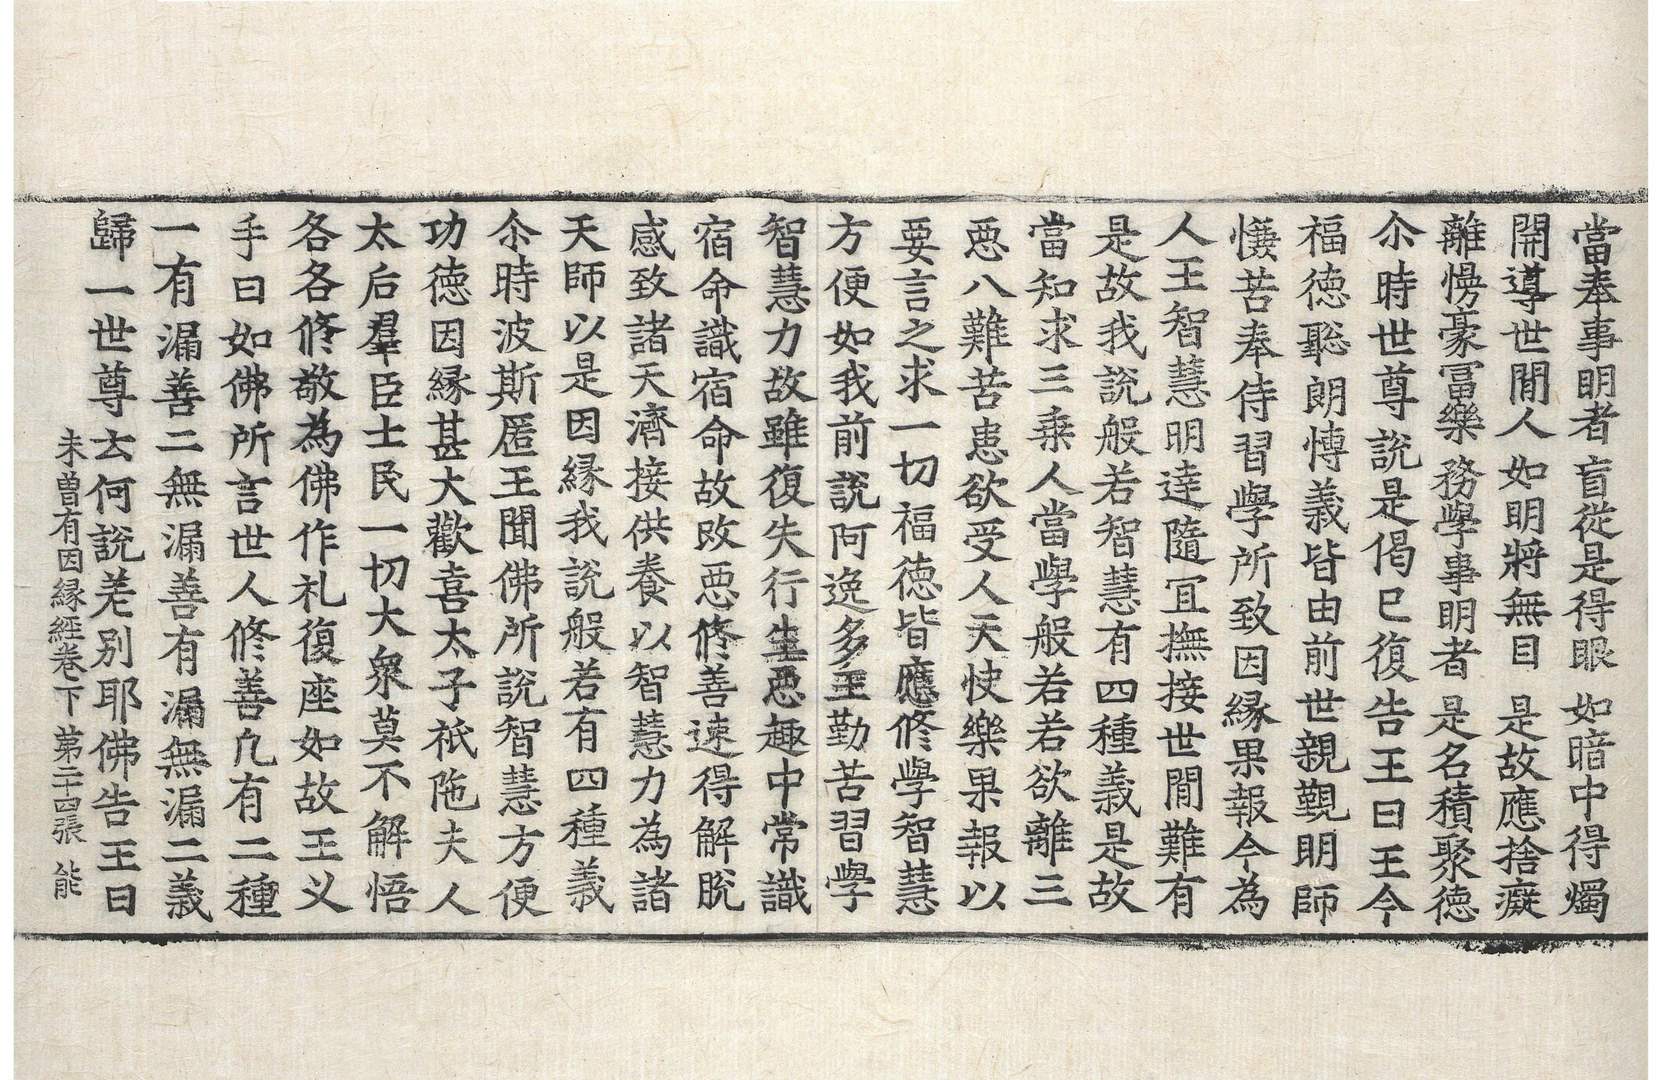 當奉事明者 盲從是得眼 如暗中得燭
開導世間人 如明將無目 是故應捨癡
離憍豪富樂 務學事明者 是名積聚德
尒時世尊說是偈已復告王曰王今
福德聡朗愽義皆由前世親覲明師
懃苦奉侍習學所致因緣果報今為
人王智慧明達隨冝撫接世間難有
是故我說般若智慧有四種義是故
當知求三乗人當學般若若欲離三
惡八難苦患欲受人天快樂果報以
要言之求一切福德皆應修學智慧
方便如我前說阿逸多王勤苦習學
智慧力故雖復失行生惡趣中常識
宿命識宿命故改惡修善速得解脫
感致諸天濟接供養以智慧力為諸
天師以是因緣我說般若有四種義
尒時波斯匿王聞佛所說智慧方便
功德因緣甚大歡喜太子祇陁夫人
太后羣臣士民一切大衆莫不解悟
各各修敬為佛作礼復座如故王义
手曰如佛所言世人修善凢有二種
一有漏善二無漏善有漏無漏二義
歸一世尊云何說差別耶佛告王曰
未曾有因緣經卷下 第二十四張 能